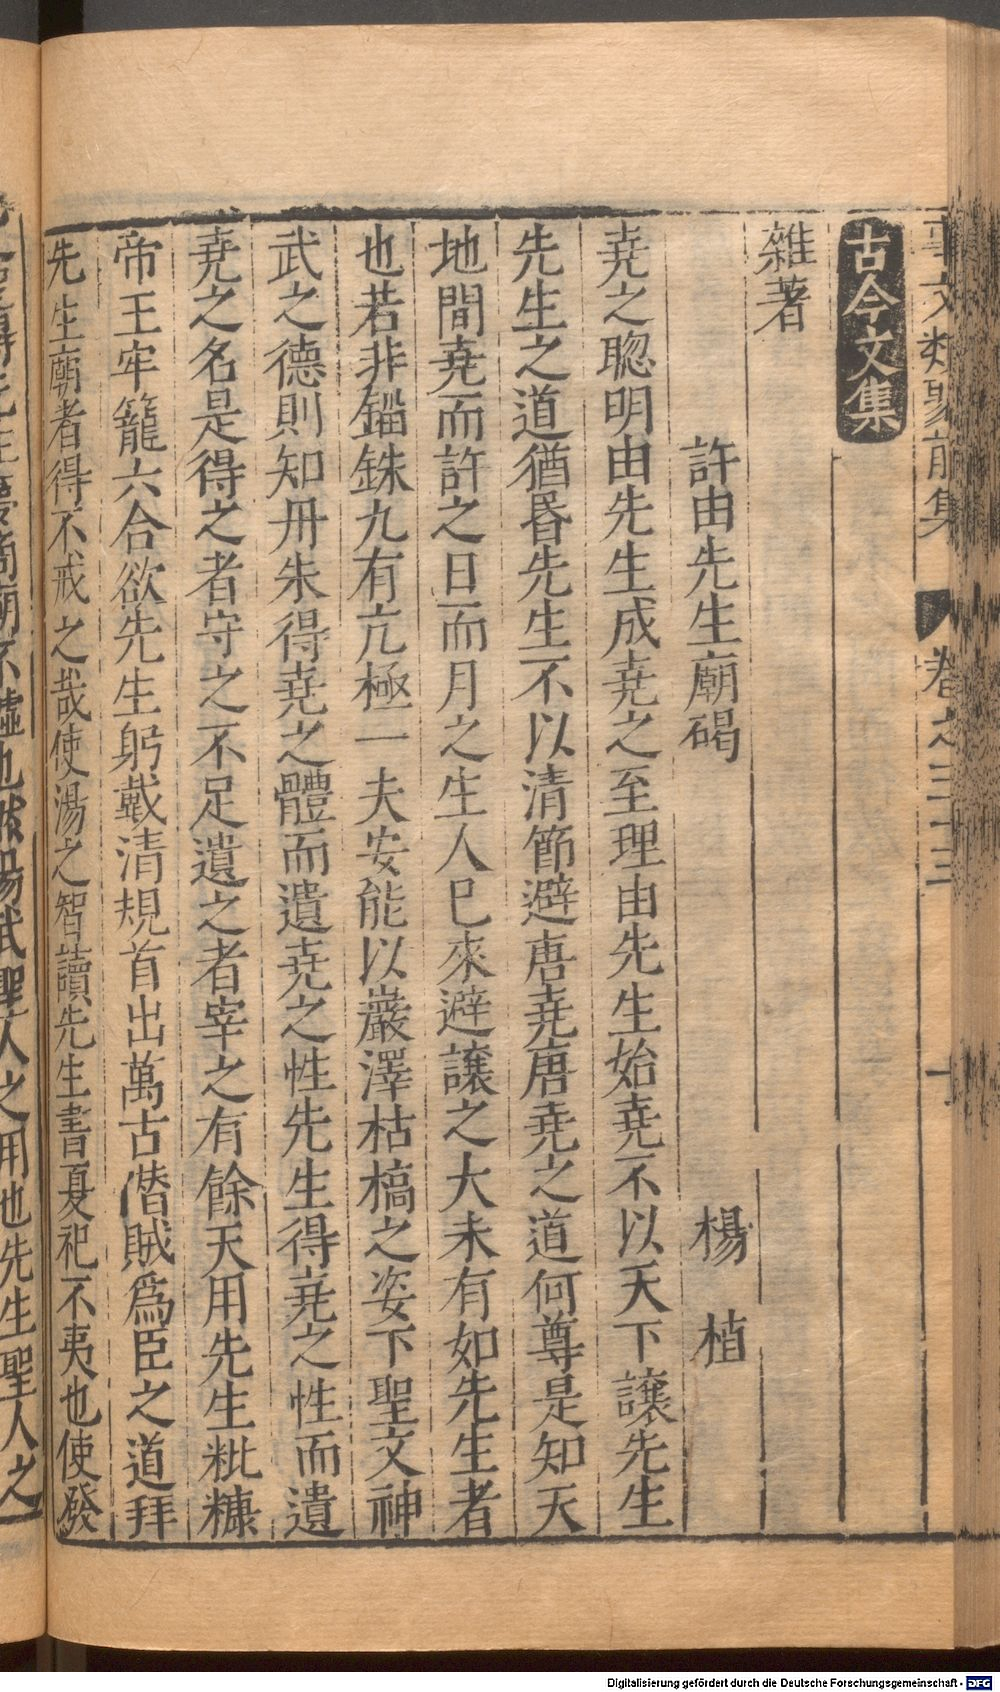 事文類聚前集 卷之三十三 十
古今文集
雜著
許由先生廟碣 楊 植
堯之聰明由先生成堯之至理由先生始堯不以天下讓先生
先生之道猶昏先生不以清節避唐堯唐堯之道何尊是知天
地間堯而許之日而月之生人已來避讓之大未有如先生者
也若非錙銖九有亢極一夫安能以巖澤枯槁之姿下聖文神
武之德則知丹朱得堯之體而遺堯之性先生得堯之性而遺
堯之名是得之者守之不足遺之者宰之有餘天用先生粃糠
帝王牢籠六合欲先生躬戴清規首出萬古僭賊爲臣之道拜
先生廟者得不戒之哉使湯之智讀先生書夏祀不夷也使發
不墟也然湯武聖人之用也先生聖人之
Digitalisierung gefördert durch die Deutsche Forschungsgemeinschaft - DFG